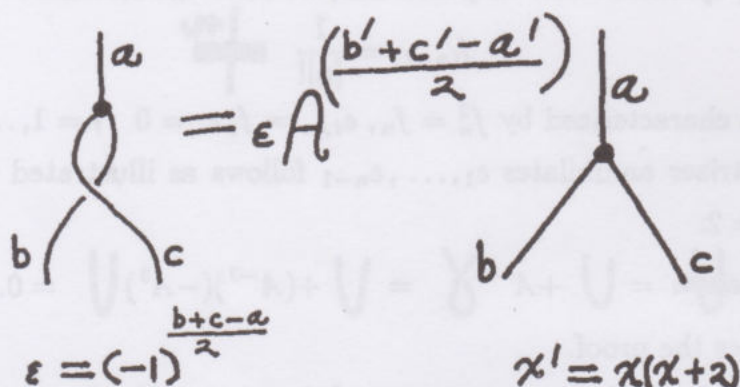 a a
= εA^((b'+c'-a')/2)
b c b c
ε = (-1)^((b+c-a)/2) x' = x(x+2)